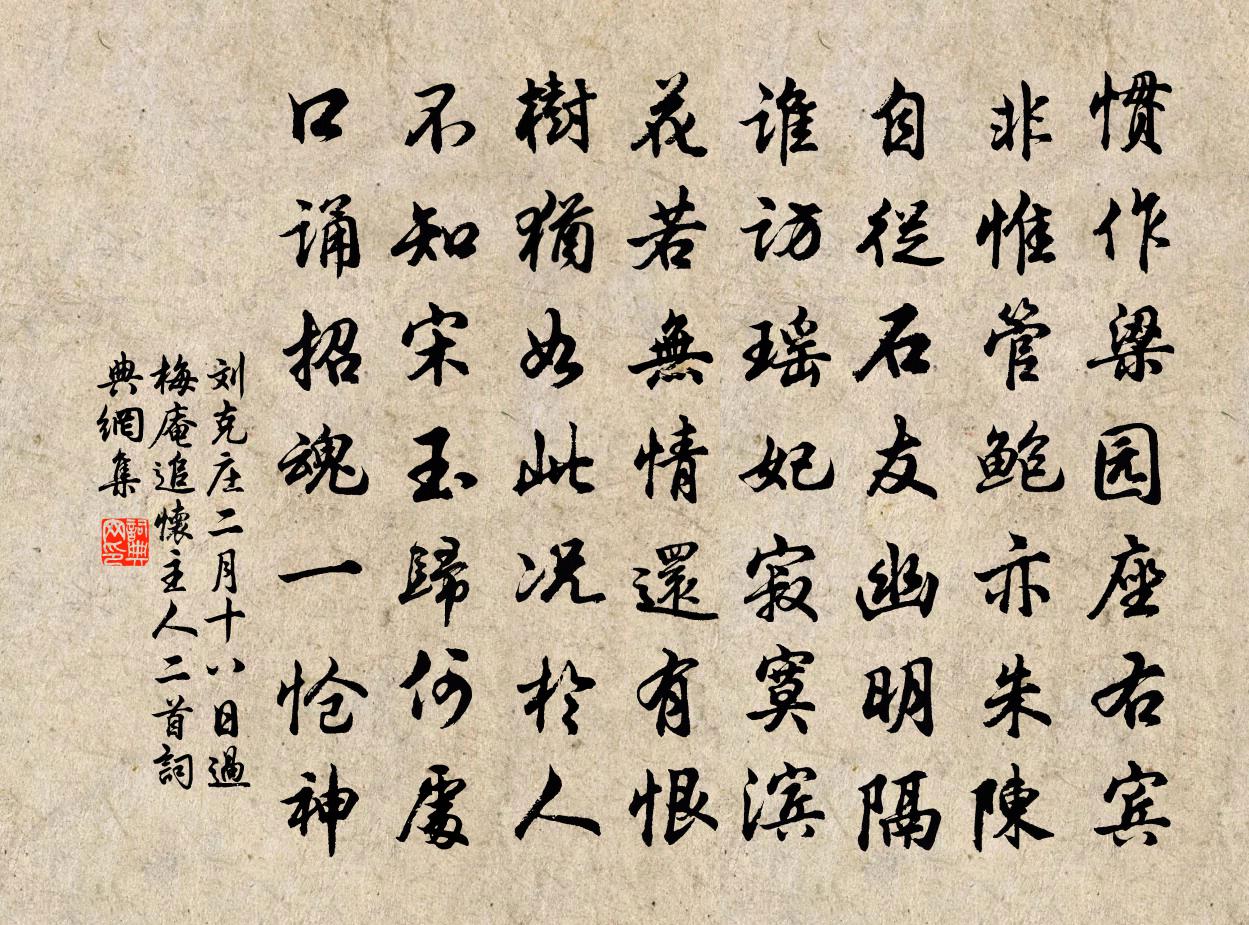 惯作梁园座右宾
非惟管鲍亦朱陳
自従石友幽明隔
谁访瑶妃寂寞滨
花若無情還有恨
樹猶如此况於人
不知宋玉歸何處
口诵招魂一怆神
刘克庄二月十八日過
梅庵追懷主人二首詞
典網集
詞典网印